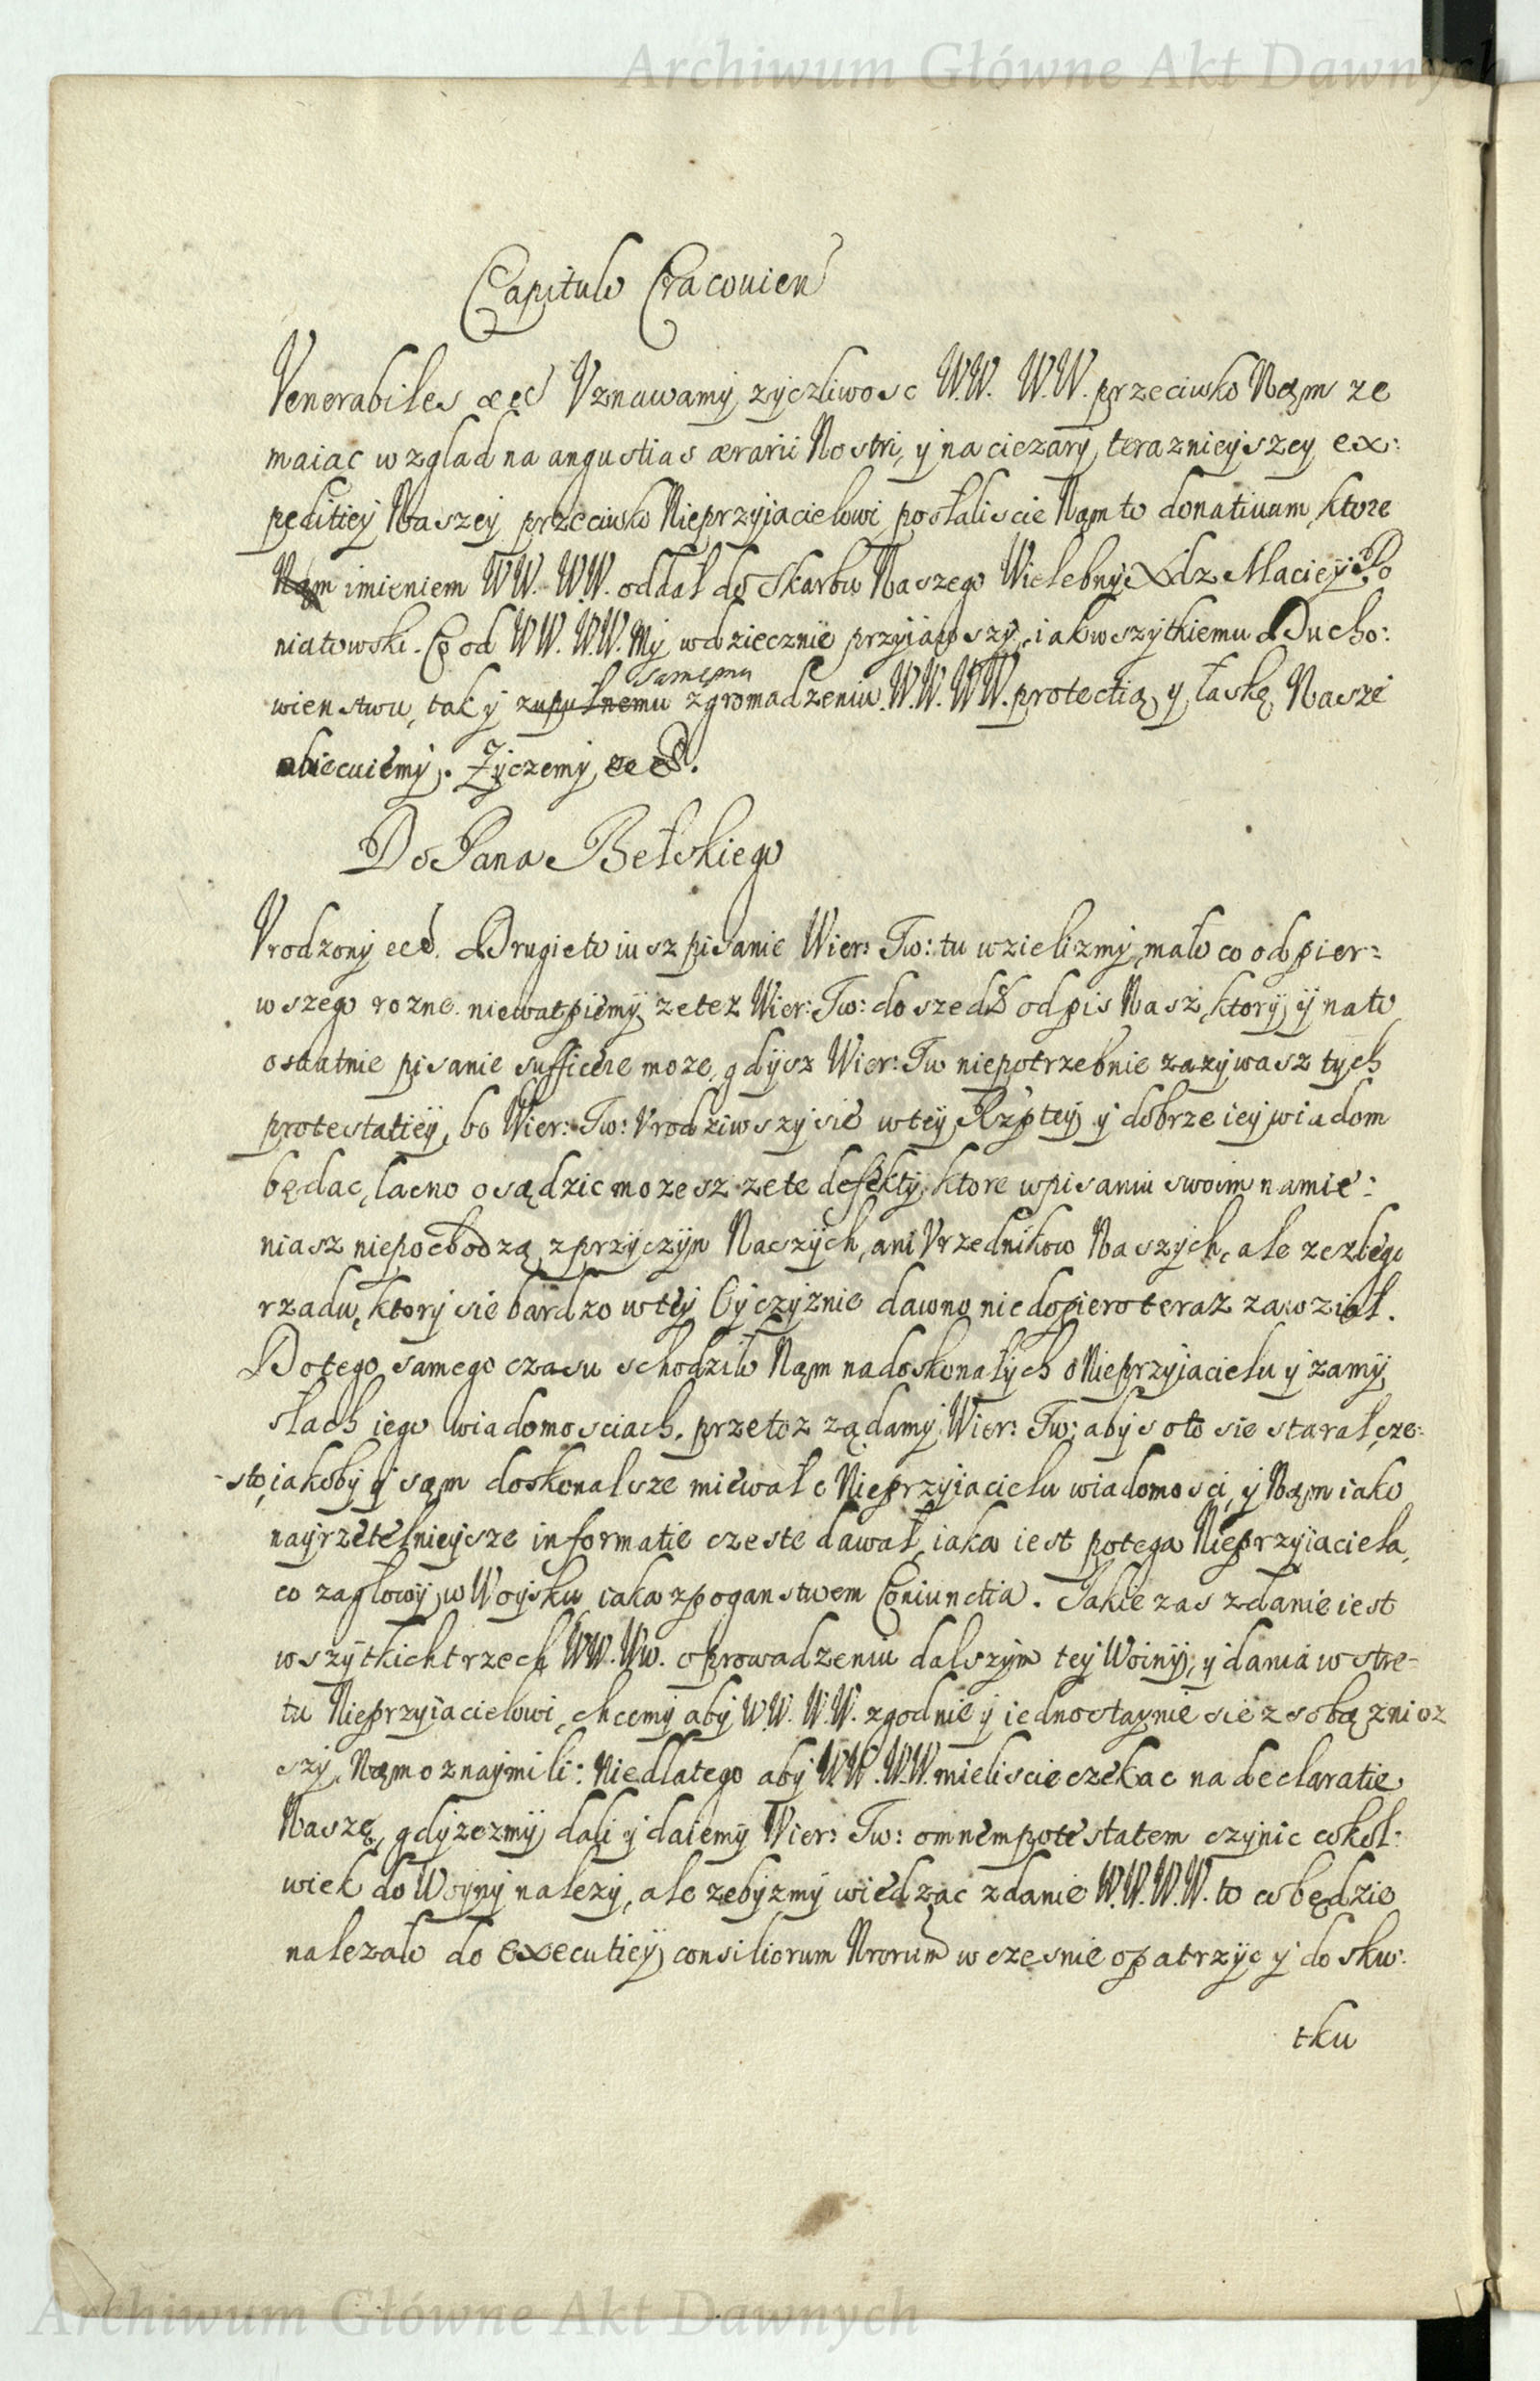 Archiwum Główne Akt Dawnych
Capitulo Cracouien
Venerabiles etc Vznawamy zyczliwosc W.W. W.W. przeciwko Nąm ze
maiąc wzglad na angustias ærarii Nostri, y na ciezary teraznieyszey ex:
peditiey Naszey przeciwko Nieprzyiacielowi posłaliscie Nąm to donatiuum, ktore
Nąm imieniem WW. WW. oddał do Skarbu Naszego Wielebny Xdz Maciey Po
niatowski. Co od WW. W.W. My wdziecznie przyiąwszy, iako wszytkiemu Ducho:
samęmu
wienstwu, tak y zupułnemu zgromadzeniu W.W. WW. protectią y łaskę Nasze
obiecuiemy. Życzemy etc.
Do Pana Bełskiego
Vrodzony etc. Drugie to iusz pisanie Wier: Tw: tu wzielizmy, mało co od pier:
wszego rozne. niewatpiemy ze tez Wier: Tw: doszedł odpis Nasz, ktory y na to
ostatnie pisanie sufficere moze, gdysz Wier: Tw niepotrzebnie zazywasz tych
protestatiey, bo Wier: Tw: Vrodziwszy sie w tey Rzptey y dobrze iey wiadom
będac, łacno osądzic mozesz ze te defekty, ktore w pisaniu swoim namie:
niasz niepochodzą z przyczyn Naszych, ani Vrzednikow Naszych, ale ze złego
rzadu, ktory sie bardzo w tey Oyczyznie dawno nie dopiero teraz zawziął.
Do tego samego czasu schodziło Nąm na doskonałych o Nieprzyiacielu y zamy
słach iego wiadomosciach. przetoz ządamy Wier: Tw: abys o to sie starał, cze:
sto, iakoby y sąm doskonalsze miewał o Nieprzyiacielu wiadomosci, y Nąm iako
nayrzetelnieysze informatie czeste dawał, iaka iest potega Nieprzyiaciela,
co za głowy w Woysku iaka z poganstwem Coniunctia. Jakie zas zdanie iest
wszytkich trzech WW. Ww. o prowadzeniu dalszym tey Woiny, y dania wstre-
tu Nieprzyiacielowi, chcemy aby W.W. W.W. zgodnie y iednostaynie sie z sobą znioz
szy, Nąm oznaymili: Nie dlatego aby WW. W.W. mieliscie czekac na declaratie
Naszę, gdyzezmy dali y daiemy Wier: Tw: omnem potestatem czynic cokol:
wiek do Woyny nalezy, ale zebyzmy wiedząc zdanie W.W. W.W. to co będzie
nalezało do executiey consiliorum Nrorum wczesnie opatrzyc y do sku:
tku
Archiwum Główne Akt Dawnych